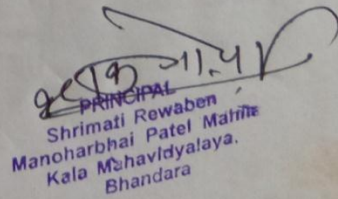 PRINCIPAL
Shrimati Rewaben
Manoharbhai Patel Mahila
Kala Mahavidyalaya.
Bhandara